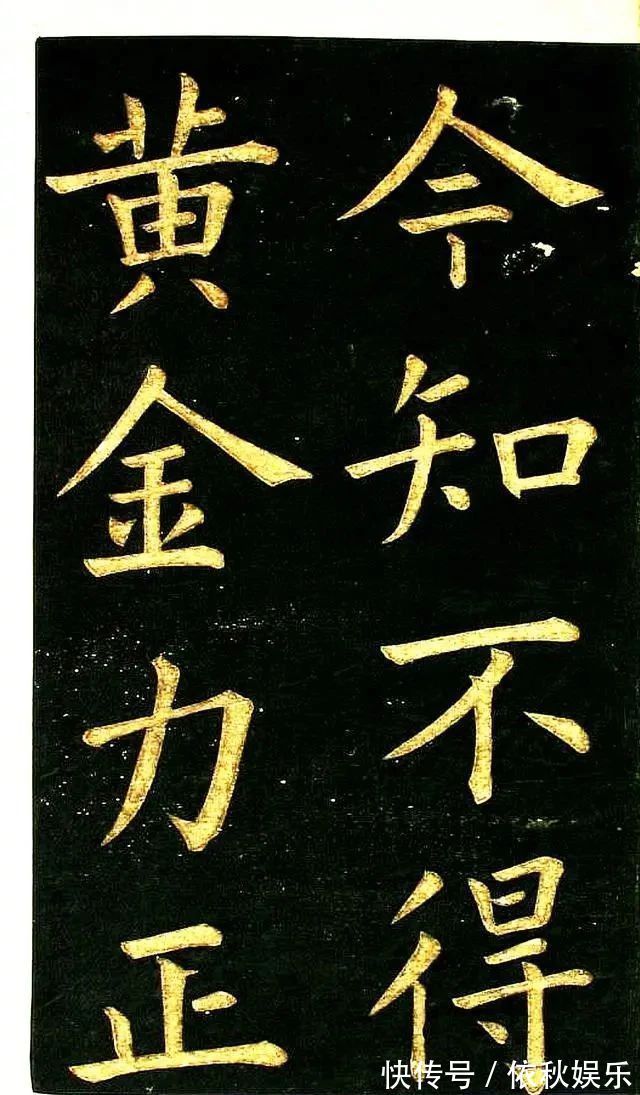 今知不得
黄金力正
快传号/依秋娱乐